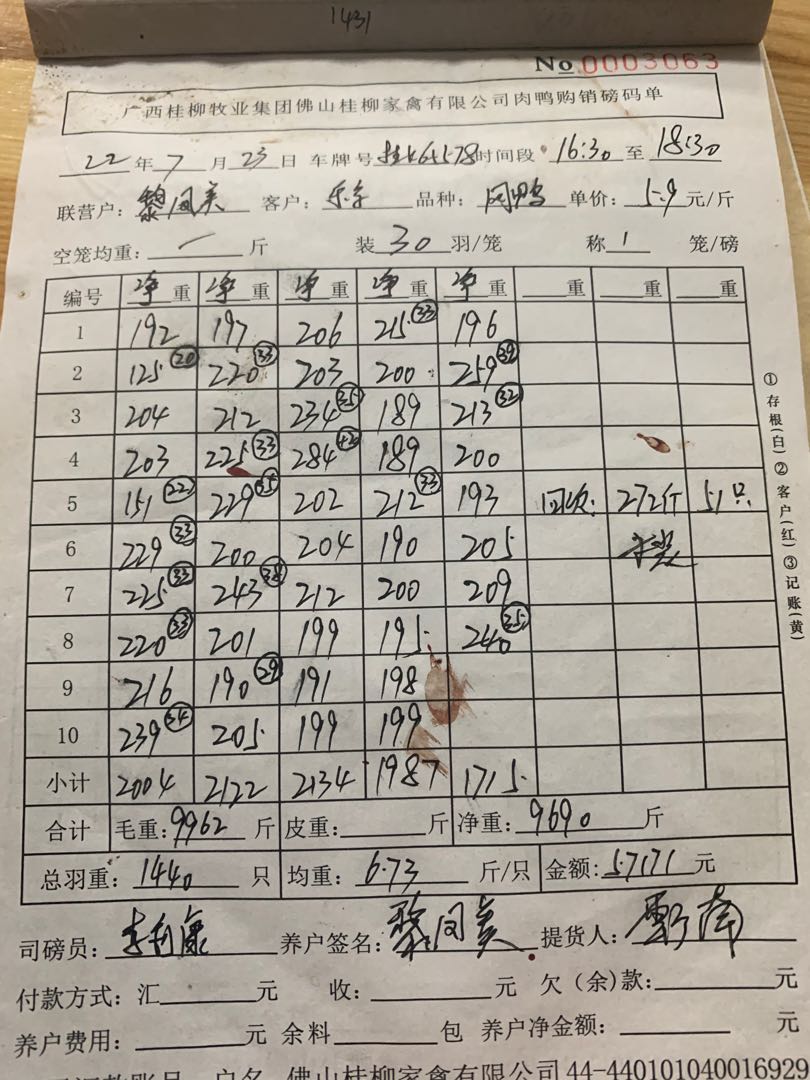 1431
No 0003063
广西桂柳牧业集团佛山桂柳家禽有限公司肉鸭购销磅码单
22 年 7 月 23 日 车牌号 时间段 16:30 至 18:30
联营户: 黎凤美 客户: 品种: 单价: 5.9 元/斤
空笼均重: 一 斤 装 30 羽/笼 称 1 笼/磅
编号 净重 净重 净重 净重 净重 重 重 重
1 192 197 206 215 33 196
2 125 20 220 33 203 200 259 39
3 204 212 234 35 189 213 32
4 203 225 33 284 42 189 200
5 151 22 229 35 202 212 33 193 回收: 272斤 51只
6 229 33 200 204 190 205
7 225 33 243 38 212 200 209
8 220 33 201 199 195 240 35
9 216 190 29 191 198
10 239 34 205 199 199
小计 2004 2122 2134 1987 1715
合计 毛重: 9962 斤 皮重: 斤 净重: 9690 斤
总羽重: 1440 只 均重: 6.73 斤/只 金额: 57171 元
司磅员: 养户签名: 黎凤美 提货人:
付款方式: 汇 元 收: 元 欠(余)款: 元
养户费用: 元 余料 包 养户净金额: 元
户名 佛山桂柳家禽有限公司 44-440101040016929
①存根(白)②客户(红)③记账(黄)